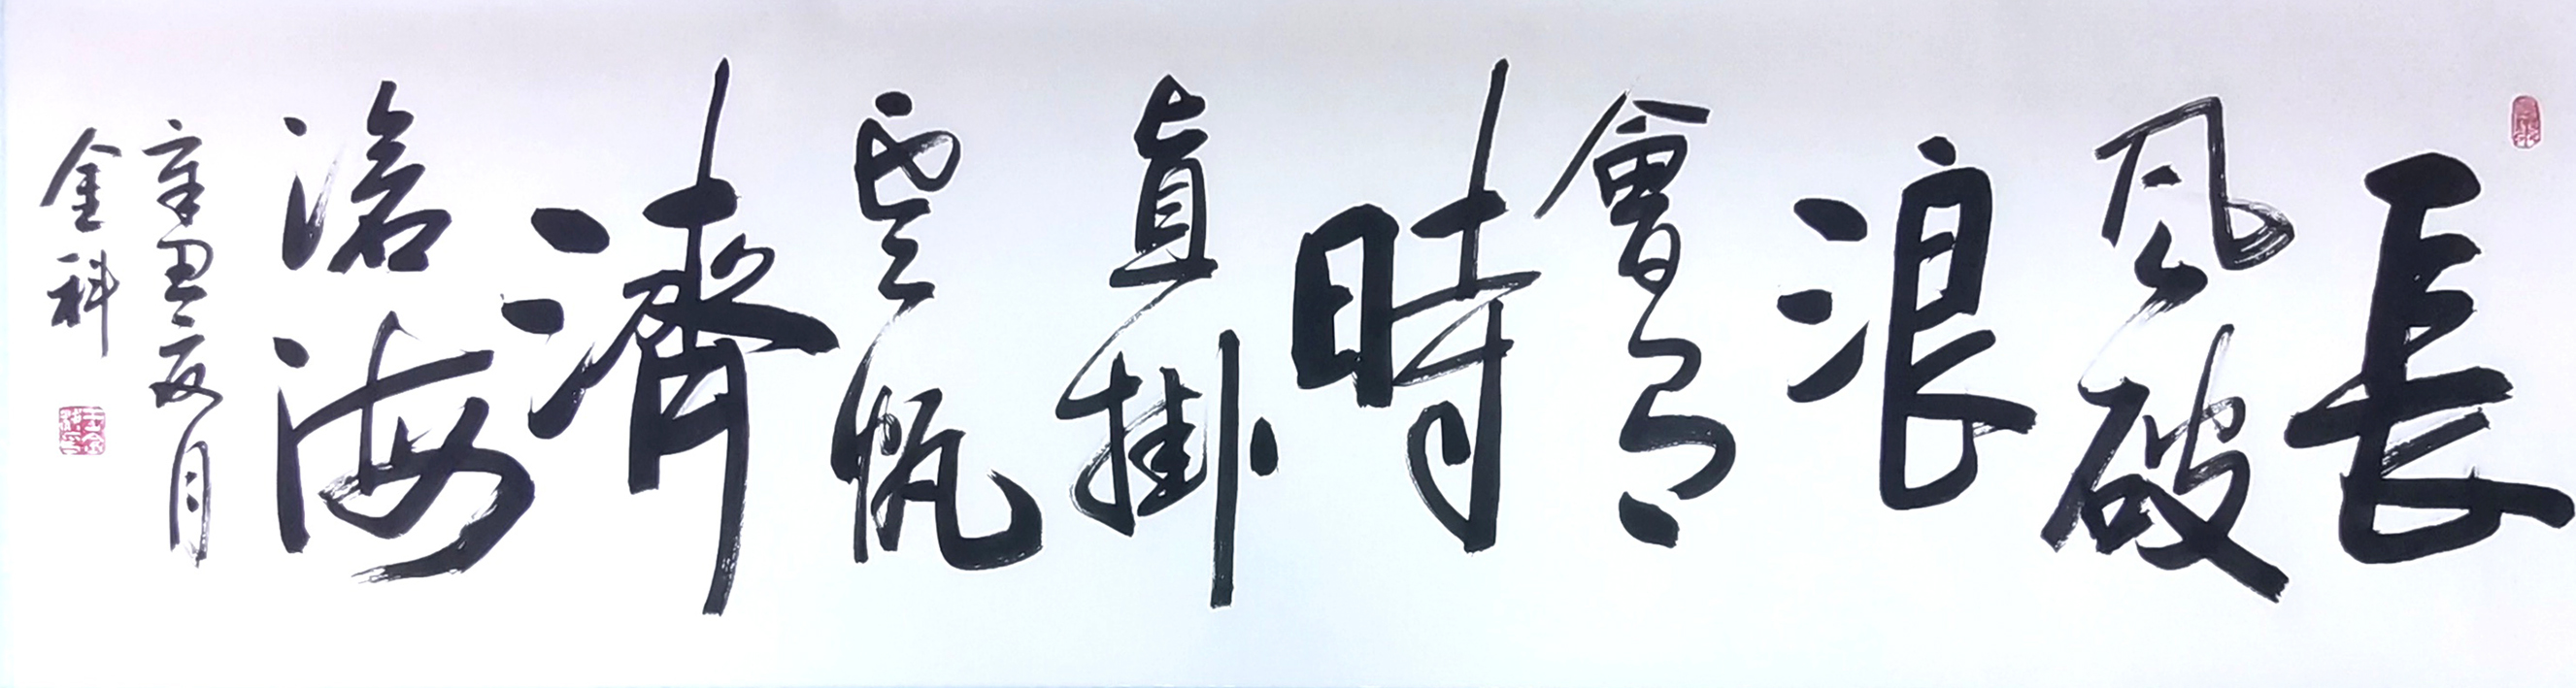 長
風破
浪
會有
時
直掛
雲帆
濟
滄海
辛丑夏月
金科
王金科印